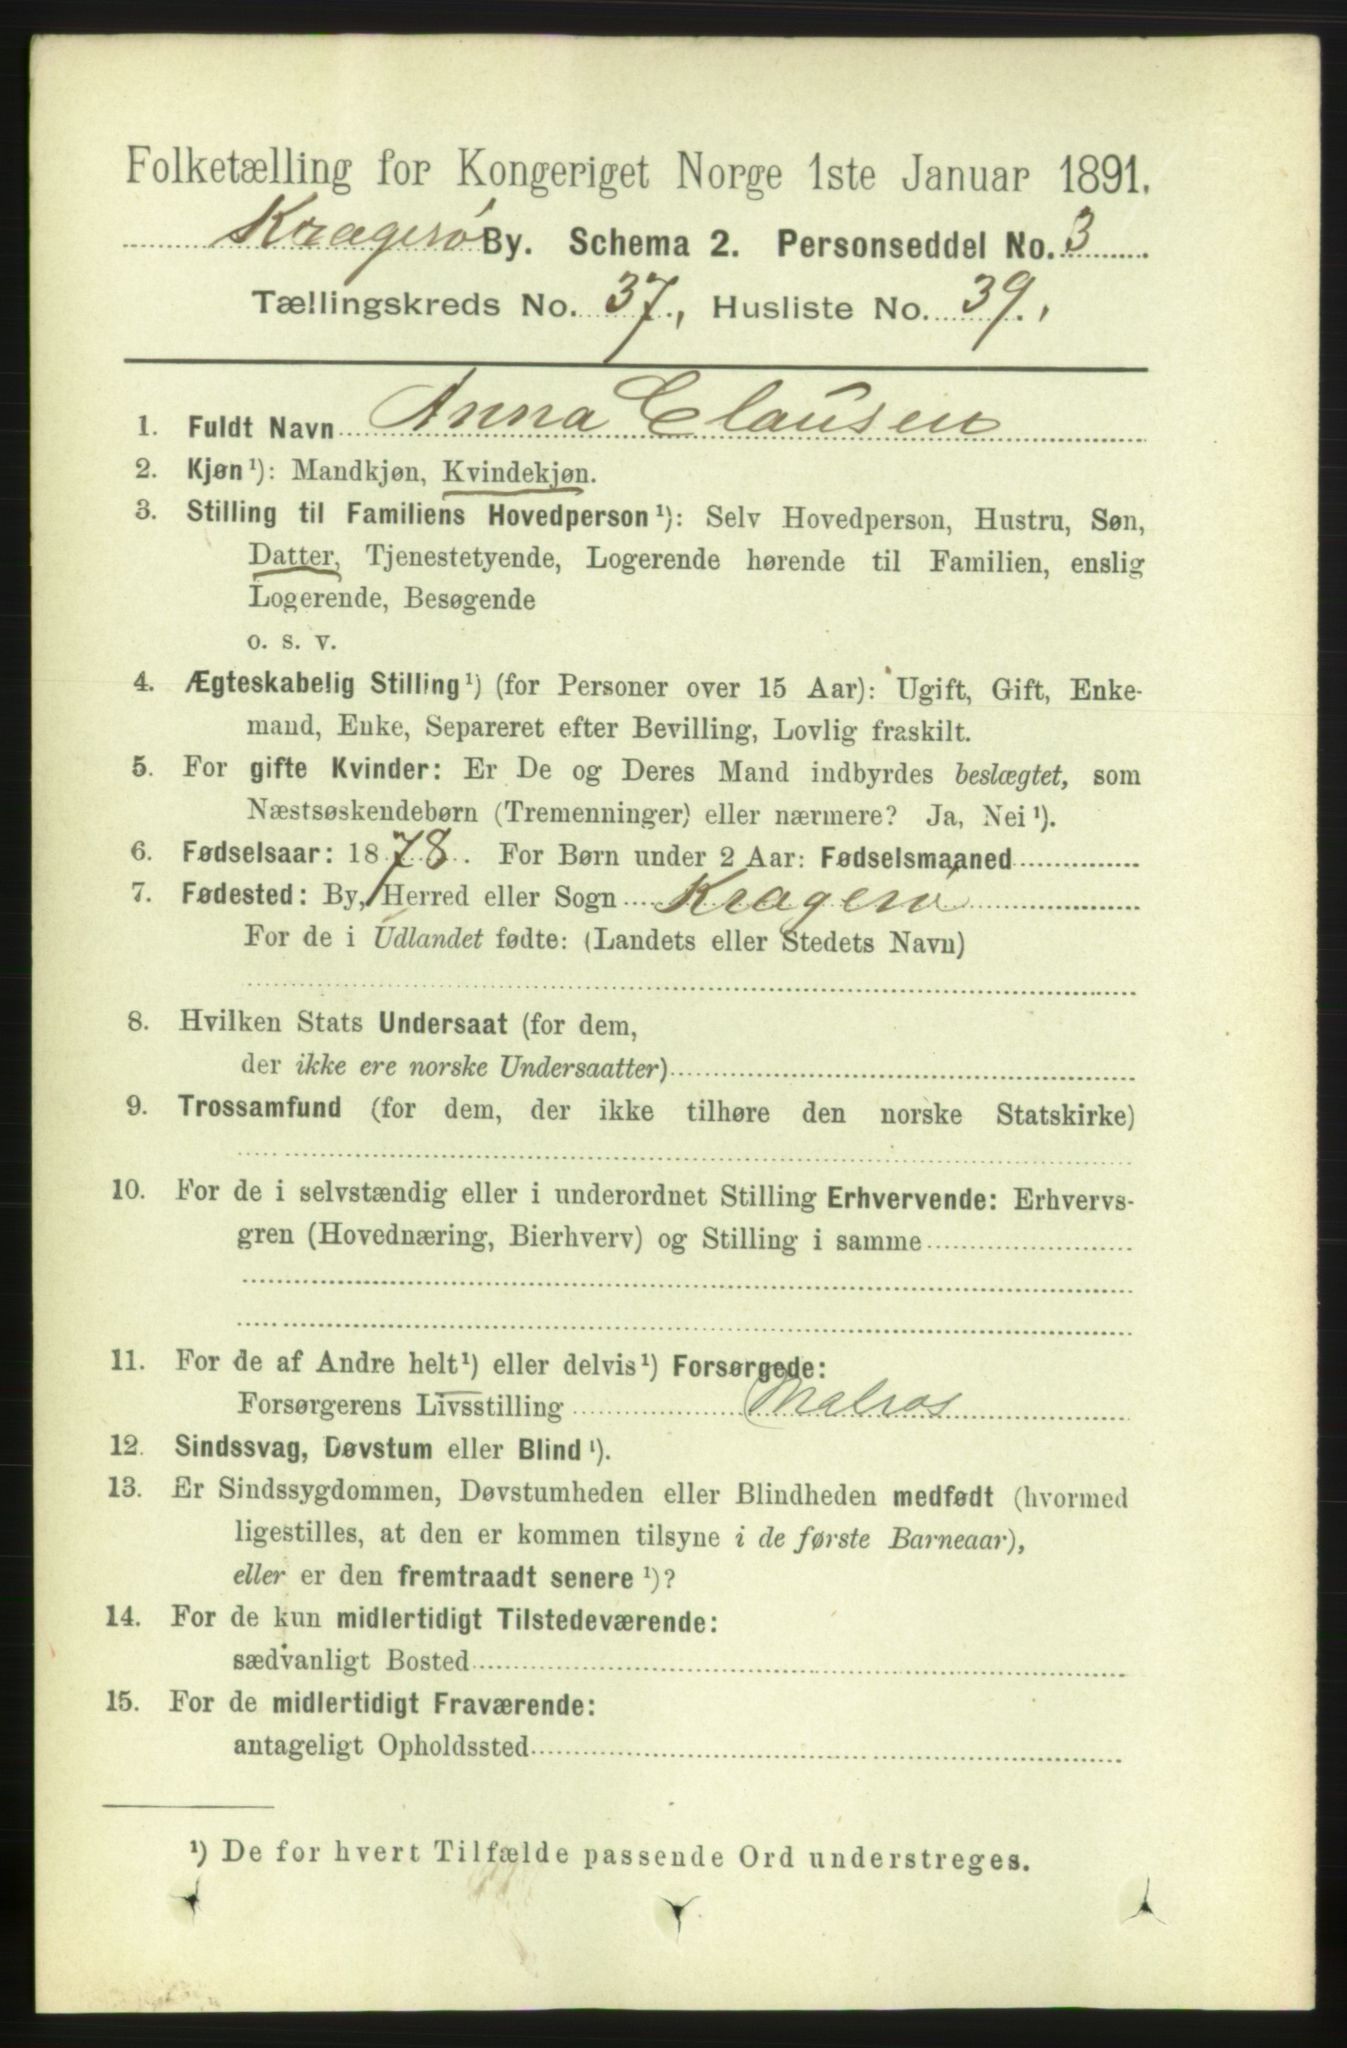 Folketælling for Kongeriget Norge 1ste Januar 1891.
Kragerø By. Schema 2. Personseddel No. 3
Tællingskreds No. 37, Husliste No. 39.,
1. Fuldt Navn Anna Clausen
2. Kjøn¹): Mandkjøn, Kvindekjøn.
3. Stilling til Familiens Hovedperson¹): Selv Hovedperson, Hustru, Søn,
Datter, Tjenestetyende, Logerende hørende til Familien, enslig
Logerende, Besøgende
o. s. v.
4. Ægteskabelig Stilling¹) (for Personer over 15 Aar): Ugift, Gift, Enke-
mand, Enke, Separeret efter Bevilling, Lovlig fraskilt.
5. For gifte Kvinder: Er De og Deres Mand indbyrdes beslægtet, som
Næstsøskendebørn (Tremenninger) eller nærmere? Ja, Nei¹).
6. Fødselsaar: 1878. For Børn under 2 Aar: Fødselsmaaned
7. Fødested: By, Herred eller Sogn Kragerø
For de i Udlandet fødte: (Landets eller Stedets Navn)
8. Hvilken Stats Undersaat (for dem,
der ikke ere norske Undersaatter)
9. Trossamfund (for dem, der ikke tilhøre den norske Statskirke)
10. For de i selvstændig eller i underordnet Stilling Erhvervende: Erhvervs-
gren (Hovednæring, Bierhverv) og Stilling i samme
11. For de af Andre helt¹) eller delvis¹) Forsørgede:
Forsørgerens Livsstilling Malros
12. Sindssvag, Døvstum eller Blind¹).
13. Er Sindssygdommen, Døvstumheden eller Blindheden medfødt (hvormed
ligestilles, at den er kommen tilsyne i de første Barneaar),
eller er den fremtraadt senere¹)?
14. For de kun midlertidigt Tilstedeværende:
sædvanligt Bosted
15. For de midlertidigt Fraværende:
antageligt Opholdssted
¹) De for hvert Tilfælde passende Ord understreges.